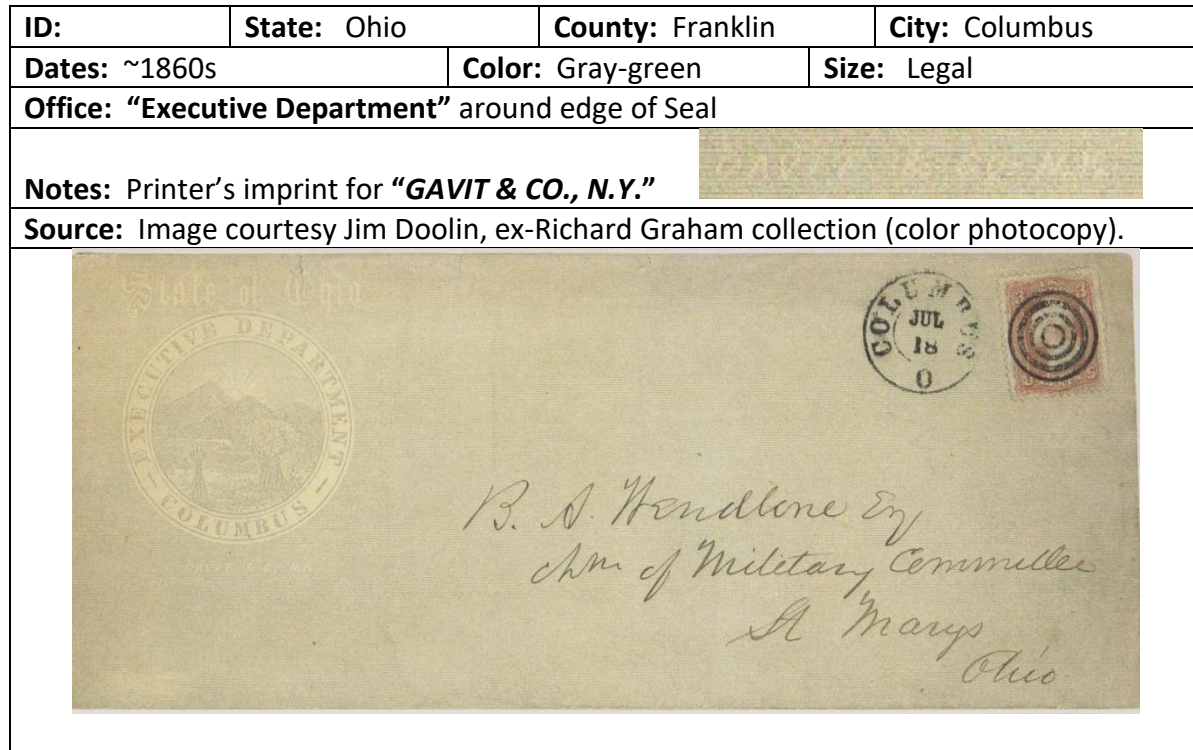 ID: State: Ohio County: Franklin City: Columbus
Dates: ~1860s Color: Gray-green Size: Legal
Office: “Executive Department” around edge of Seal
GAVIT & CO. N.Y.
Notes: Printer’s imprint for “GAVIT & CO., N.Y.”
Source: Image courtesy Jim Doolin, ex-Richard Graham collection (color photocopy).
State of Ohio
EXECUTIVE DEPARTMENT
COLUMBUS
COLUMBUS
JUL
18
O
3 3
B. A. Wendlone Esq
chm of Military Committee
St Marys
Ohio